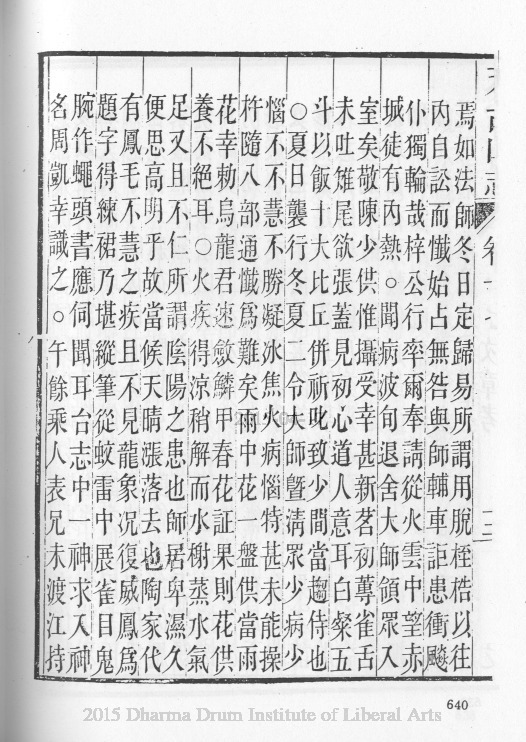 焉如法師冬日定歸易所謂用脫桎梏以往
內自訟而懺始占無咎與師輔車詎患衝飈
仆獨輪哉梓公行卒爾奉請從火雲中望赤
城徒有內熱○聞病波旬退舍大師領眾入
室矣敬陳少供惟攝受幸甚新茗初蓴雀舌
未吐雉尾欲張蓋見初心道人意耳白粲五
斗以飯十大比丘併祈叱致少間當趨侍也
○夏日襲行冬夏二令大師暨清眾少病少
惱不不慧不勝凝冰焦火病惱特甚未能操
杵隨八部通懺爲難矣雨中花一盤供當雨
花幸勅烏龍君速斂鱗甲春花証果則花供
養不絕耳○火疾得涼稍解而水榭蒸水氣
足又且不仁所謂陰陽之患也師居卑濕久
便思高明乎故當候天晴漲落去也陶家代
有鳳毛不慧之疾且不見龍象況復威鳳爲
題字得練裙乃堪縱筆從蚊雷中展雀目鬼
腕作蠅頭書應伺聞耳台志中一神求入神
名周凱幸識之○午餘乘人表兄未渡江持
640
2015 Dharma Drum Institute of Liberal Arts